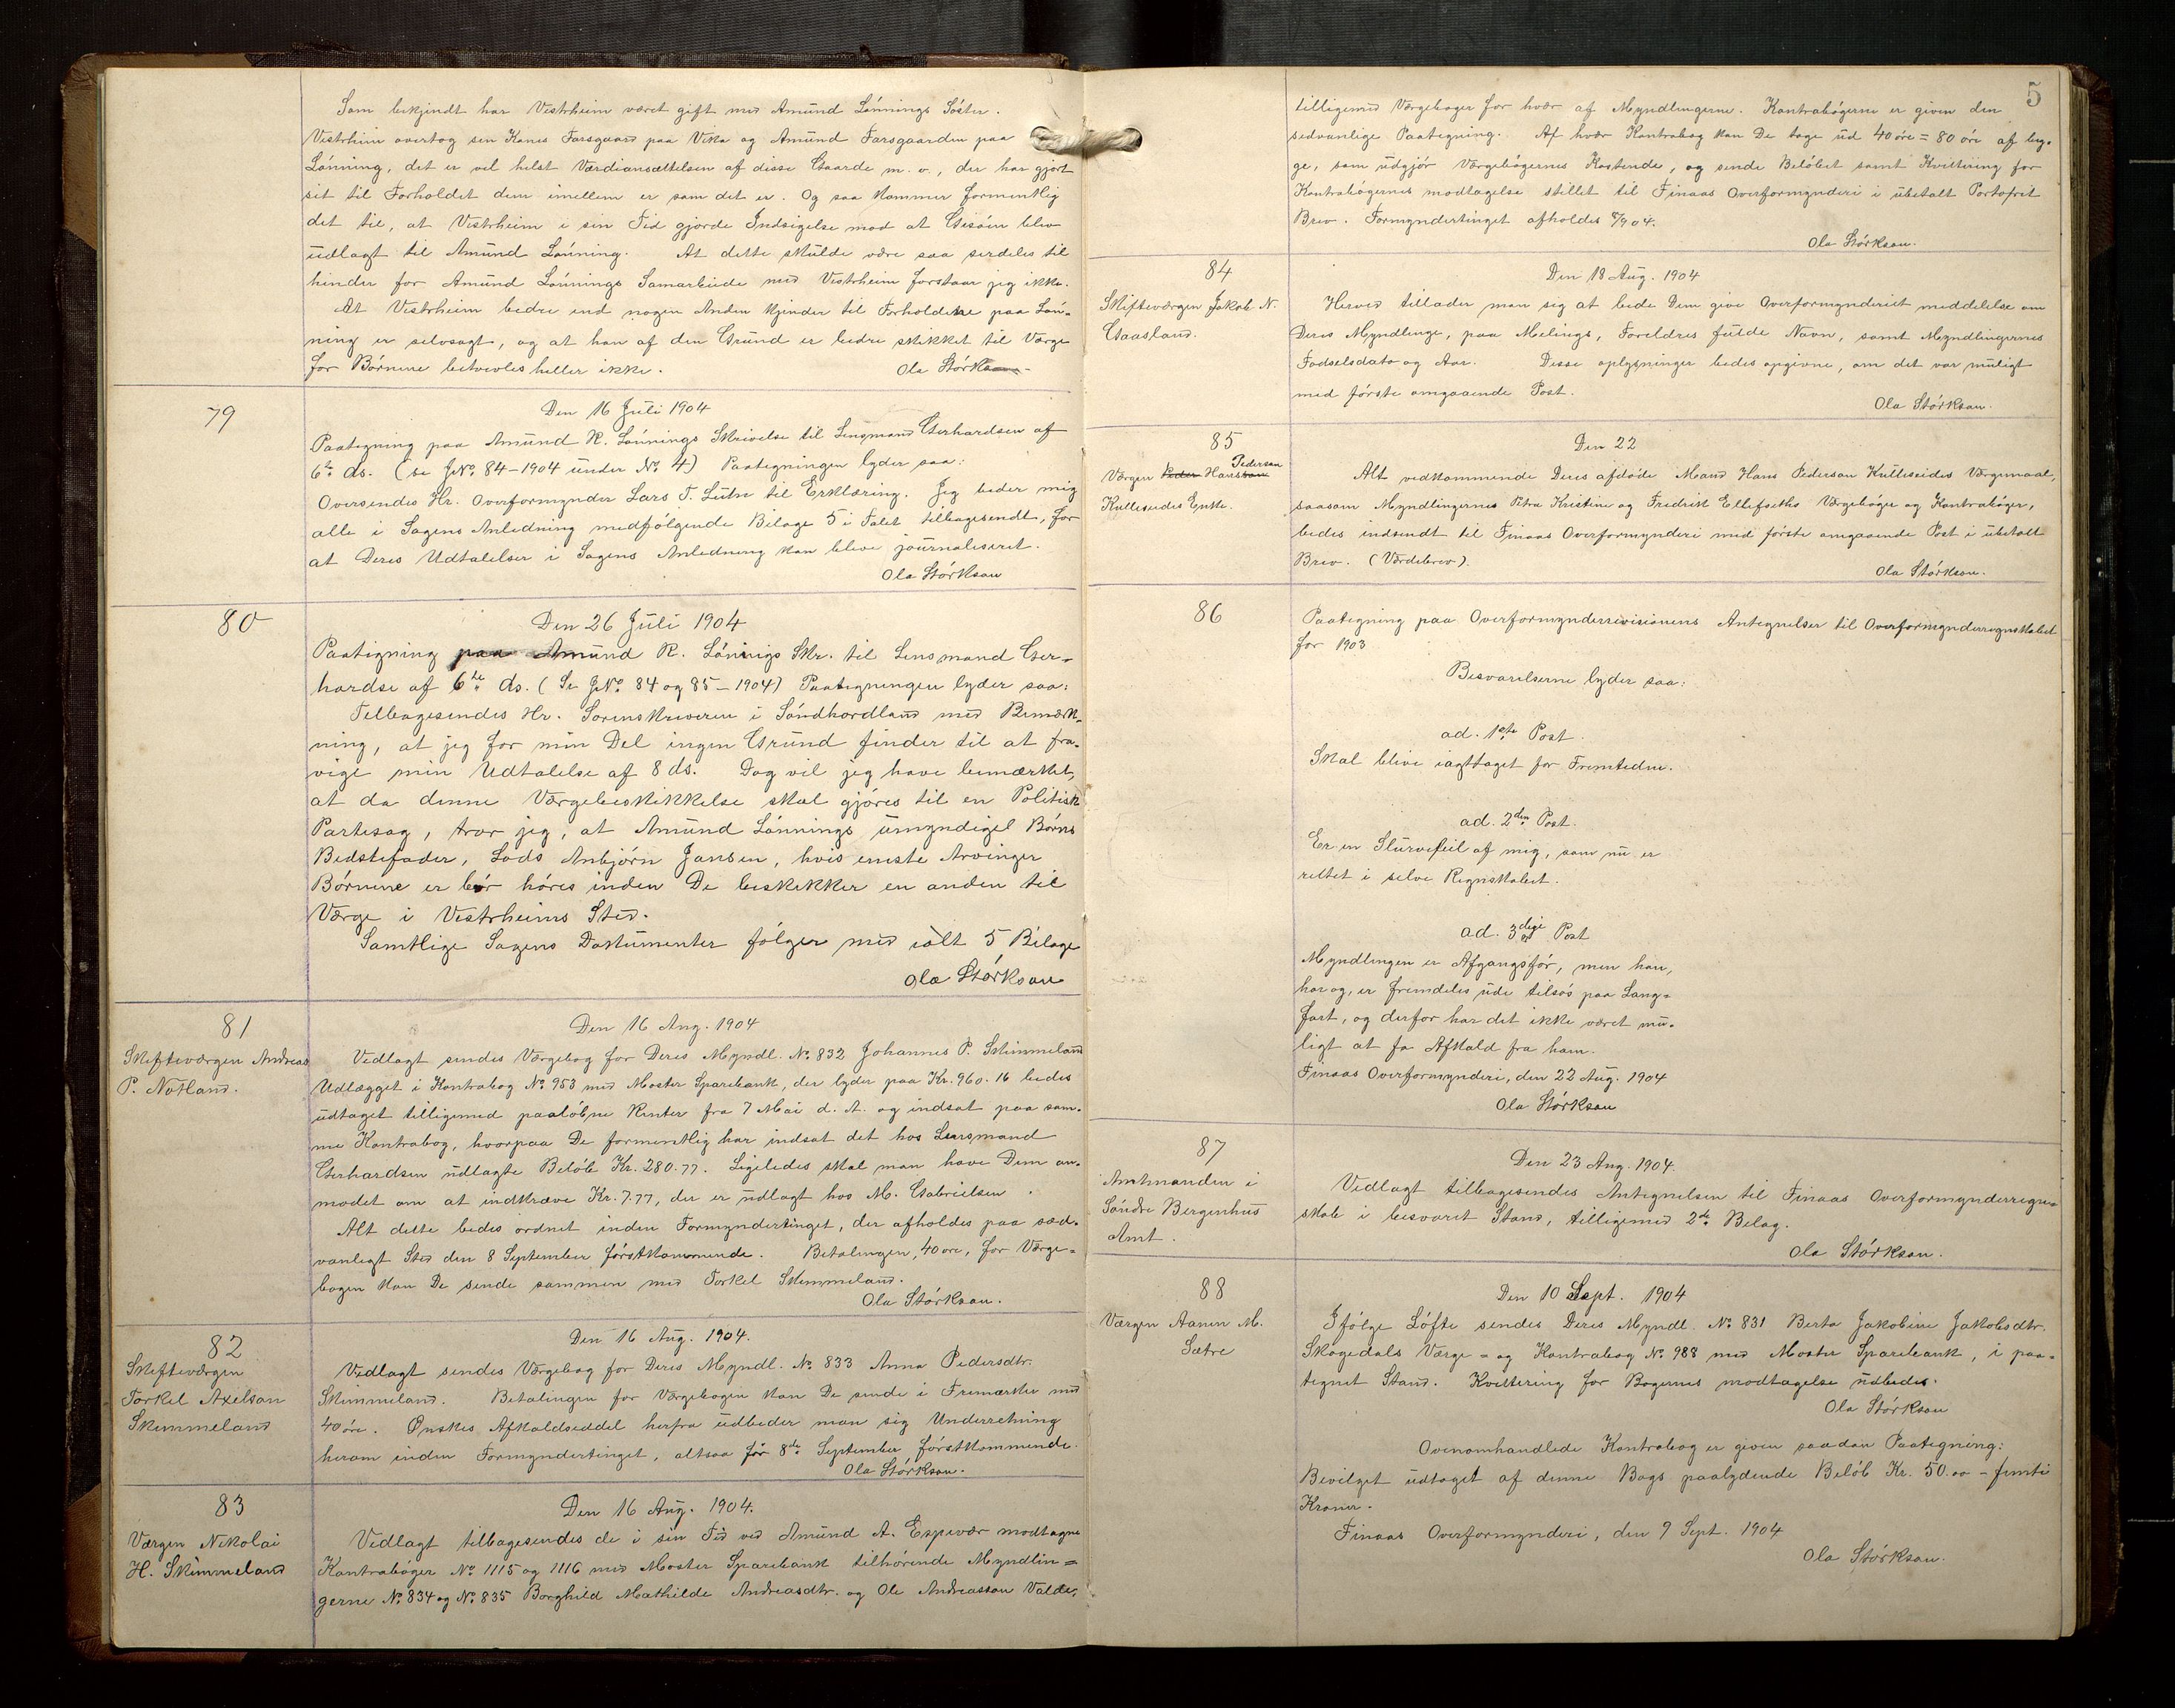 Som bekjendt har Vestrheim været gift med Amund Lønnings Søster.
Vestrheim overtog sin Kones Farsgaard paa Vika og Amund Farsgaarden paa
Lønning, det er vel helst Værdiansættelsen af disse Gaarde m. v., der har gjort
sit til Forholdet dem imellem er som det er. Og saa kommer formentlig
det til, at Vestrheim i sin Tid gjorde Indsigelse mod at Gisøen blev
udlagt til Amund Lønning. At dette skulde være saa serdeles til
hinder for Amund Lønnings Samarbeide med Vestrheim forstaar jeg ikke.
At Vestrheim bedre end nogen Anden kjender til Forholdene paa Løn-
ning er selvsagt, og at han af den Grund er bedre skikket til Værge
for Børnene betvivles heller ikke.
Ola Størkson
79
Den 16 Juli 1904
Paategning paa Amund R. Lønnings Skrivelse til Lensmand Gerhardsen af
6te ds. (se JNo. 84-1904 under No. 4) Paategningen lyder saa:
Oversendes Hr. Overformynder Lars T. Lutn til Erklæring. Jeg beder mig
alle i Sagens Anledning medfølgende Bilage 5 i Talet tilbagesendt, for
at Deres Udtalelser i Sagens Anledning kan blive journaliseret.
Ola Størkson
80
Den 26 Juli 1904
Paategning paa Amund R. Lønnigs Skr. til Lensmand Ger-
hardse af 6te ds. (Se JNo. 84 og 85-1904) Paategningen lyder saa:
Tilbagesendes Hr. Sorenskriveren i Søndhordland med Bemærk-
ning, at jeg for min Del ingen Grund finder til at fra-
vige min Udtalelse af 8 ds. Dog vil jeg have bemærket,
at da denne Værgebeskikkelse skal gjøres til en Politisk
Partisag, tror jeg, at Amund Lønnings umyndigel Børns
Bedstefader, Lods Anbjørn Jansen, hvis eneste Arvinger
Børnene er bør høres inden De beskikker en anden til
Værge i Vestrheims Sted.
Samtlige Sagens Dokumenter følger med ialt 5 Bilage
Ola Størkson
81
Skifteværgen Andreas
P. Notland.
Den 16 Aug. 1904
Vedlagt sendes Værgebog for Deres Myndl. No. 832 Johannes P. Skimmeland
Udlægget i Kontrabog No. 953 med Moster Sparebank, der lyder paa Kr. 960.16 bedes
udtaget tilligemed paaløbne Renter fra 7 Mai d. A. og indsat paa sam-
me Kontrabog, hvorpaa De formentlig har indsat det hos Lensmand
Gerhardsen udlagte Beløb Kr. 280.77. Ligeledes skal man have Dem an-
modet om at indkræve Kr. 7.77, der er udlagt hos M. Gabrielsen.
Alt dette bedes ordnet inden Formyndertinget, der afholdes paa sæd-
vanligt Sted den 8 September førstkommende. Betalingen, 40 øre, for Værge-
bogen kan De sende sammen med Torkel Skimmeland.
Ola Størkson.
82
Skifteværgen
Torkel Axelson
Skimmeland
Den 16 Aug. 1904.
Vedlagt sendes Værgebog for Deres Myndl. No. 833 Anna Pedersdtr.
Skimmeland. Betalingen for Værgebogen kan De sende i Frimærker med
40 øre. Ønskes Afkaldseddel herfra udbeder man sig Underretning
herom inden Formyndertinget, altsaa før 8de September førstkommende.
Ola Størkson.
83
Værgen Nikolai
H. Skimmeland
Den 16 Aug. 1904.
Vedlagt tilbagesendes de i sin Tid ved Amund A. Espevær modtagne
Kontrabøger No. 1115 og 1116 med Moster Sparebank tilhørende Myndlin-
gerne No. 834 og No. 835 Borghild Mathilde Andreasdtr. og Ole Andreasson Valde,
5
tilligemed Værgebøger for hvær af Myndlingerne. Kontrabøgerne er given den
sedvanlige Paategning. Af hvær Kontrabog kan De tage ud 40 øre = 80 øre af beg-
ge, som udgjør Værgebøgernes Kostende, og sende Beløbet samt Kvittering for
Kontrabøgernes modtagelse stillet til Finaas Overformynderi i ubetalt Portofrit
Brev. Formyndertinget afholdes 8/9 04.
Ola Størkson.
84
Skifteværgen Jakob N.
Gaasland.
Den 18 Aug. 1904
Herved tillader man sig at bede Dem give Overformynderiet meddelelse om
Deres Myndlinge, paa Melings, Foreldres fulde Navn, samt Myndlingernes
Fødselsdato og Aar. Disse oplysninger bedes opgivne, om det var muligt
med første omgaaende Post.
Ola Størkson.
85
Værgen Peder Hansson Pederson
Kulleseides Enke.
Den 22
Alt vedkommende Deres afdøde Mand Hans Pederson Kulleseides Værgemaal,
saasom Myndlingernes Petra Kristine og Fredrik Ellefseths Værgebøger og Kontrabøger,
bedes indsendt til Finaas Overformynderi med første omgaaende Post i ubetalt
Brev. (Værdibrev).
Ola Størkson.
86
Paategning paa Overformynderrevisionens Antegnelser til Overformynderregnskabet
for 1903
Besvarelserne lyder saa:
ad. 1ste Post.
Skal blive iagttaget for Fremtiden.
ad. 2den Post.
Er en Slurvefeil af mig, som nu er
rettet i selve Regnskabet.
ad. 3dige Post
Myndlingen er Afgangsfør, men han,
har og, er fremdeles ude tilsøs paa Lang-
fart, og derfor har det ikke været mu-
ligt at fa Afkald fra ham.
Finaas Overformynderi, den 22 Aug. 1904
Ola Størkson
87
Amtmanden i
Søndre Bergenhus
Amt.
Den 23 Aug. 1904.
Vedlagt tilbagesendes Antegnelsen til Finaas Overformynderregn-
skab i besvaret Stand, tilligemed 2de Belag.
Ola Størkson.
88
Værgen Aanen M.
Sætre
Den 10 Sept. 1904
Ifølge Løfte sendes Deres Myndl. No. 831 Berta Jakobine Jakobsdtr.
Skogedals Værge- og Kontrabog No. 988 med Moster Sparebank, i paa-
tegnet Stand. Kvittering for Bøgernes modtagelse udbedes.
Ola Størkson
Ovenomhandlede Kontrabog er given saadan Paategning:
Bevilget udtaget af denne Bogs paalydende Beløb Kr. 50.00 - femti
Kroner.
Finaas Overformynderi, den 9 Sept. 1904
Ola Størkson.